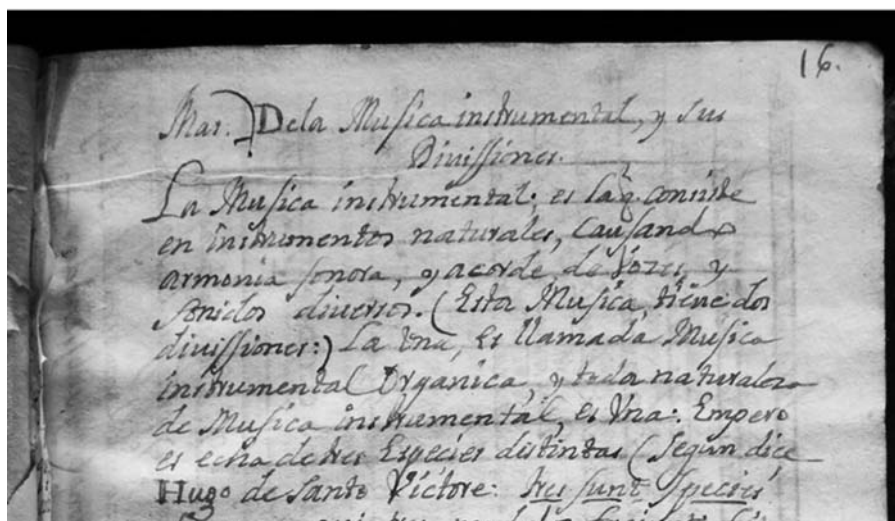 16.
Mar. De la Musica instrumental, y sus
Divissiones.
La Musica instrumental; es la q̃. consiste
en instrumentos naturales, causando
armonia sonora, y acorde, de Vozes, y
sonidos diversos. (Esta Musica, tiene dos
divissiones:) La Vna, es llamada Musica
instrumental Organica, y toda naturaleza
de Musica instrumental, es Vna: Empero
es echa de tres Especies distintas (segun dice
Hugo de Santo Victore: tres sunt species